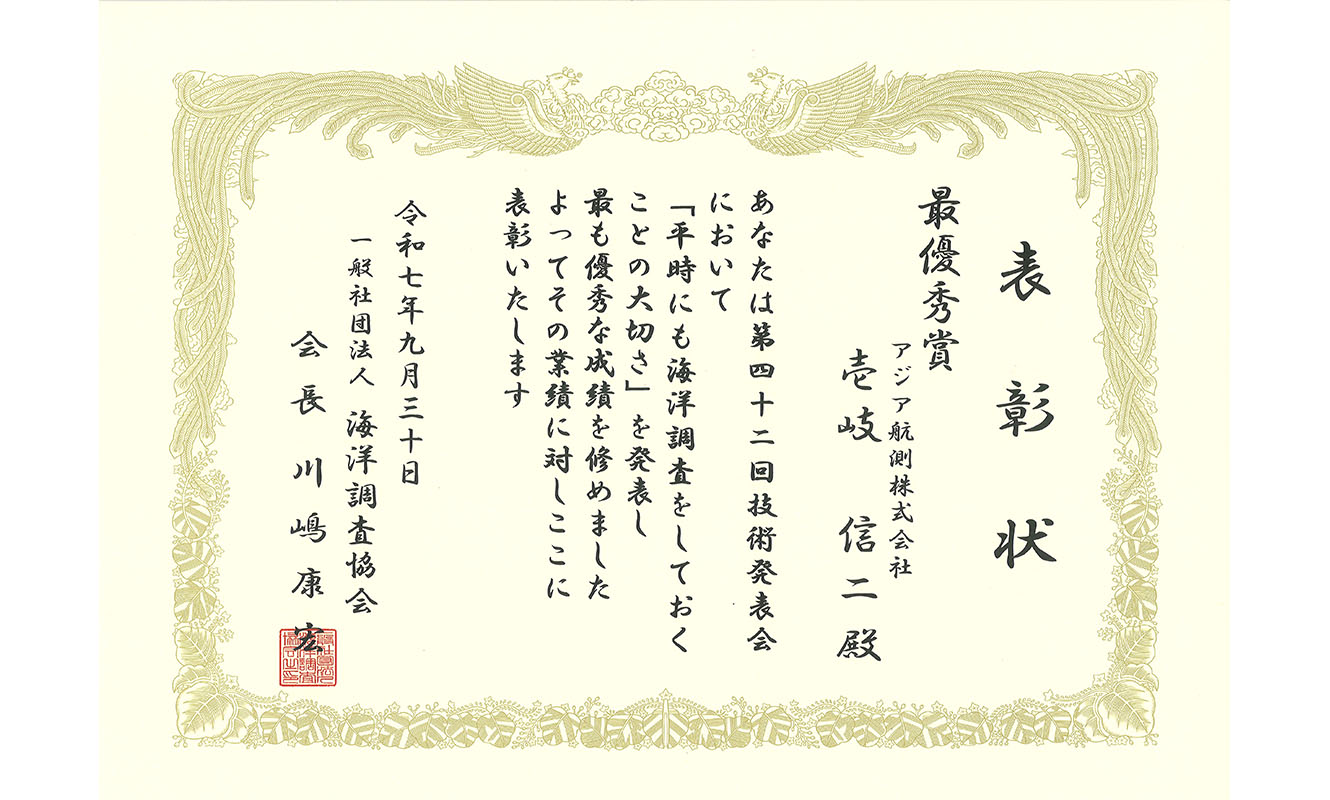 表彰状
最優秀賞
アジア航測株式会社
壱岐 信二 殿
あなたは第四十二回技術発表会
において
「平時にも海洋調査をしておく
ことの大切さ」を発表し
最も優秀な成績を修めました
よってその業績に対しここに
表彰いたします
令和七年九月三十日
一般社団法人 海洋調査協会
会長 川嶋康宏